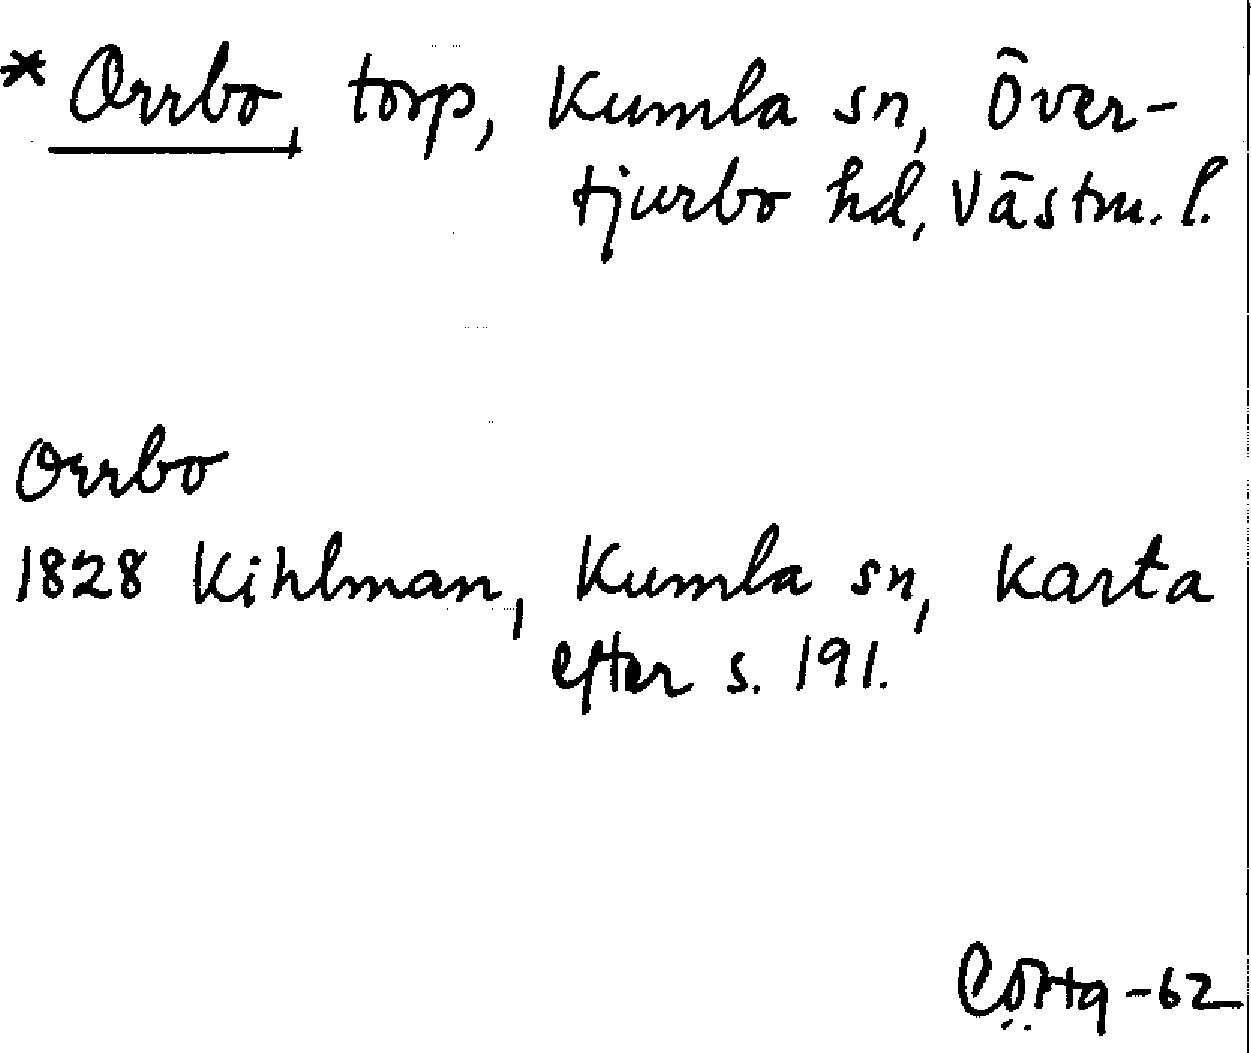 * Orrbo, torp, Kumla sn, Över-
tjurbo hd, Västm. l.
Orrbo
1828 Kihlman, Kumla sn, Karta
efter s. 191.
-62